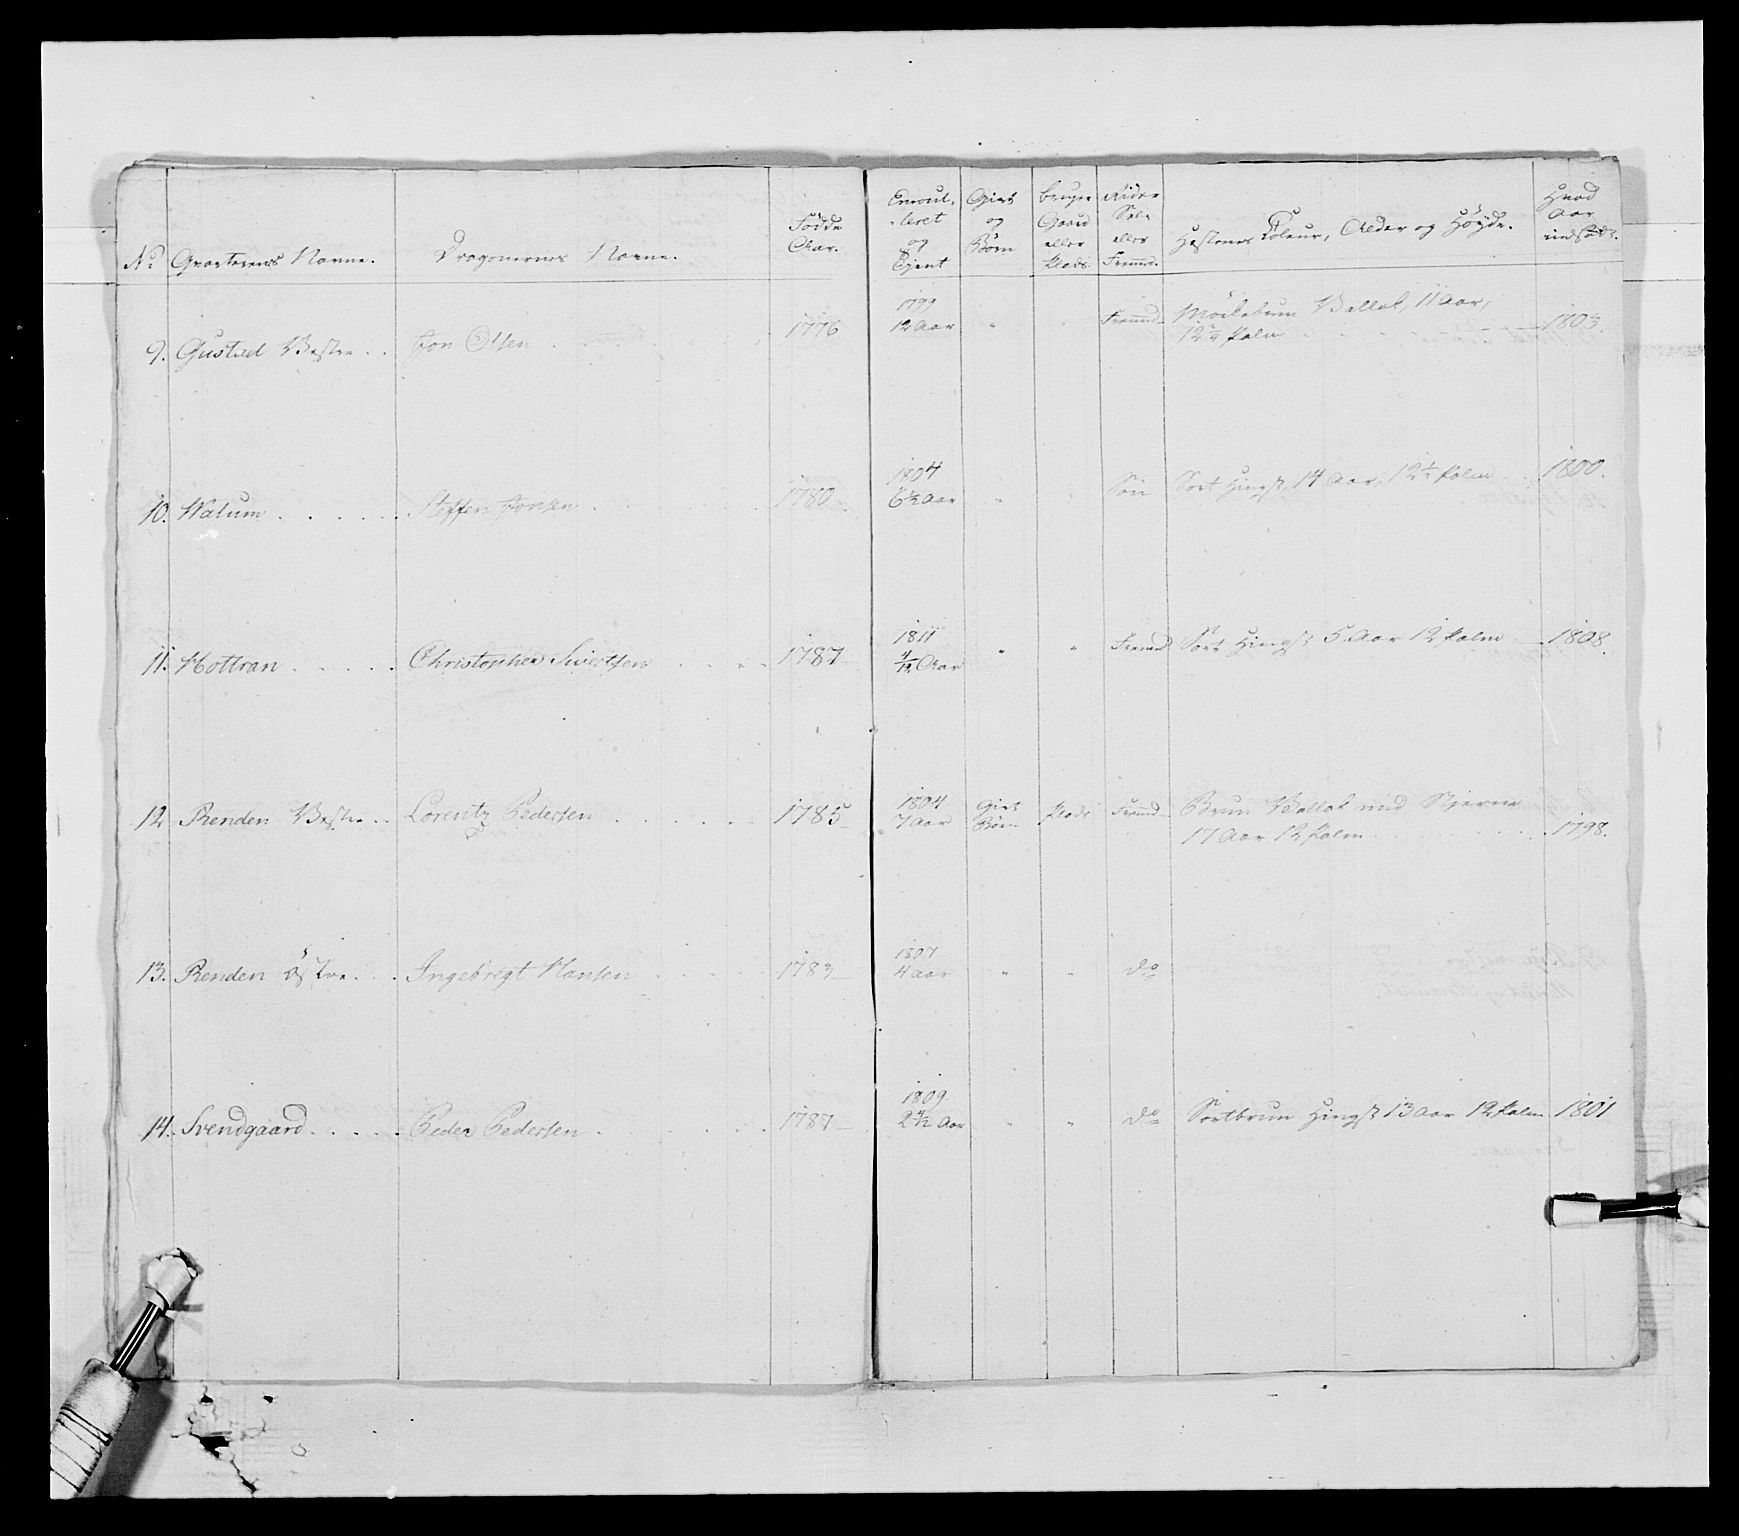 No Qvarterens Navne. Dragonernes Navne. Födde Aar. Enroulleret og Tjent Givt og Börn bruger Gaard eller Plads Rider Sel. eller Fremd. Hestenes Coleur, Alder og Höyde. Hvad Aar indsadt.
9. Gustad Vestre . . Jon Olsen 1776 1799 12 Aar " " Fremmd Mörkebrun Vallak, 11 Aar,
12 3/4 Palm 1803.
10. Walum . . . . . Steffen Jonsen 1780 1804 6 1/2 Aar " " Sön Sort Hingst, 14 Aar, 12 1/2 Palm 1800.
11. Hottran . . . . . Christopher Sivertsen 1787 1811 4/12 Aar " " Fremd Sort Hingst 5 Aar 12 Palm 1808.
12 Renden Vestre . . Lorentz Pedersen 1785 1804 7 Aar Givt Börn Plads Fremd Brun Vallak med Stjerne
17 Aar 12 Palm 1798.
13. Renden Östre . . . Ingebregt Hansen 1783 1807 4 Aar " " do
14. Svendgaard . . . . . Peder Pedersen 1787 1809 2 4/12 Aar " " do Sortbrun Hingst 13 Aar 12 Palm 1801